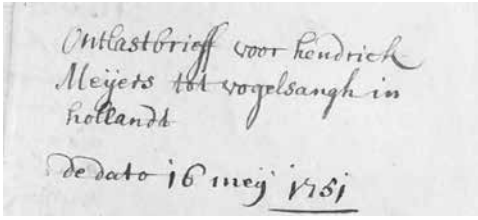 Ontlastbrieff voor hendrick
Meijers tot vogelsangh in
hollandt
de dato 16 meij 1751